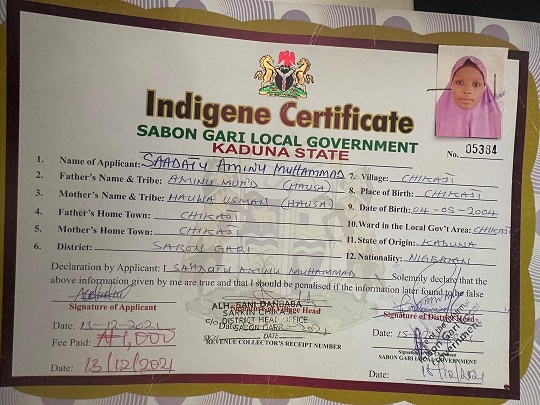 Indigene Certificate
SABON GARI LOCAL GOVERNMENT
KADUNA STATE
No. 05384
1. Name of Applicant: SAADATU AMINU MUHAMMAD
2. Father's Name & Tribe: AMINU MUH'D (HAUSA)
3. Mother's Name & Tribe: HAUWA USMAN (HAUSA)
4. Father's Home Town: CHIKAJI
5. Mother's Home Town: CHIKAJI
6. District: SABON GARI
7. Village: CHIKAJI
8. Place of Birth: CHIKAJI
9. Date of Birth: 04-05-2004
10. Ward in the Local Gov't Area: CHIKAJI
11. State of Origin: KADUNA
12. Nationality: NIGERIAN
Declaration by Applicant: I SAADATU AMINU MUHAMMAD Solemnly declare that the
above information given by me are true and that I should be penalised if the information later found to be false
Signature of Applicant
Date: 13-12-2021
Fee Paid: ₦1,000
Date: 13/12/2021
ALH. SANI DANBABA
SARKIN CHIKAJI
C/O DISTRICT HEAD OFFICE
Village Head
DATE
REVENUE COLLECTOR'S RECEIPT NUMBER
Signature of District Head
Date:
SABON GARI LOCAL GOVERNMENT
Date: